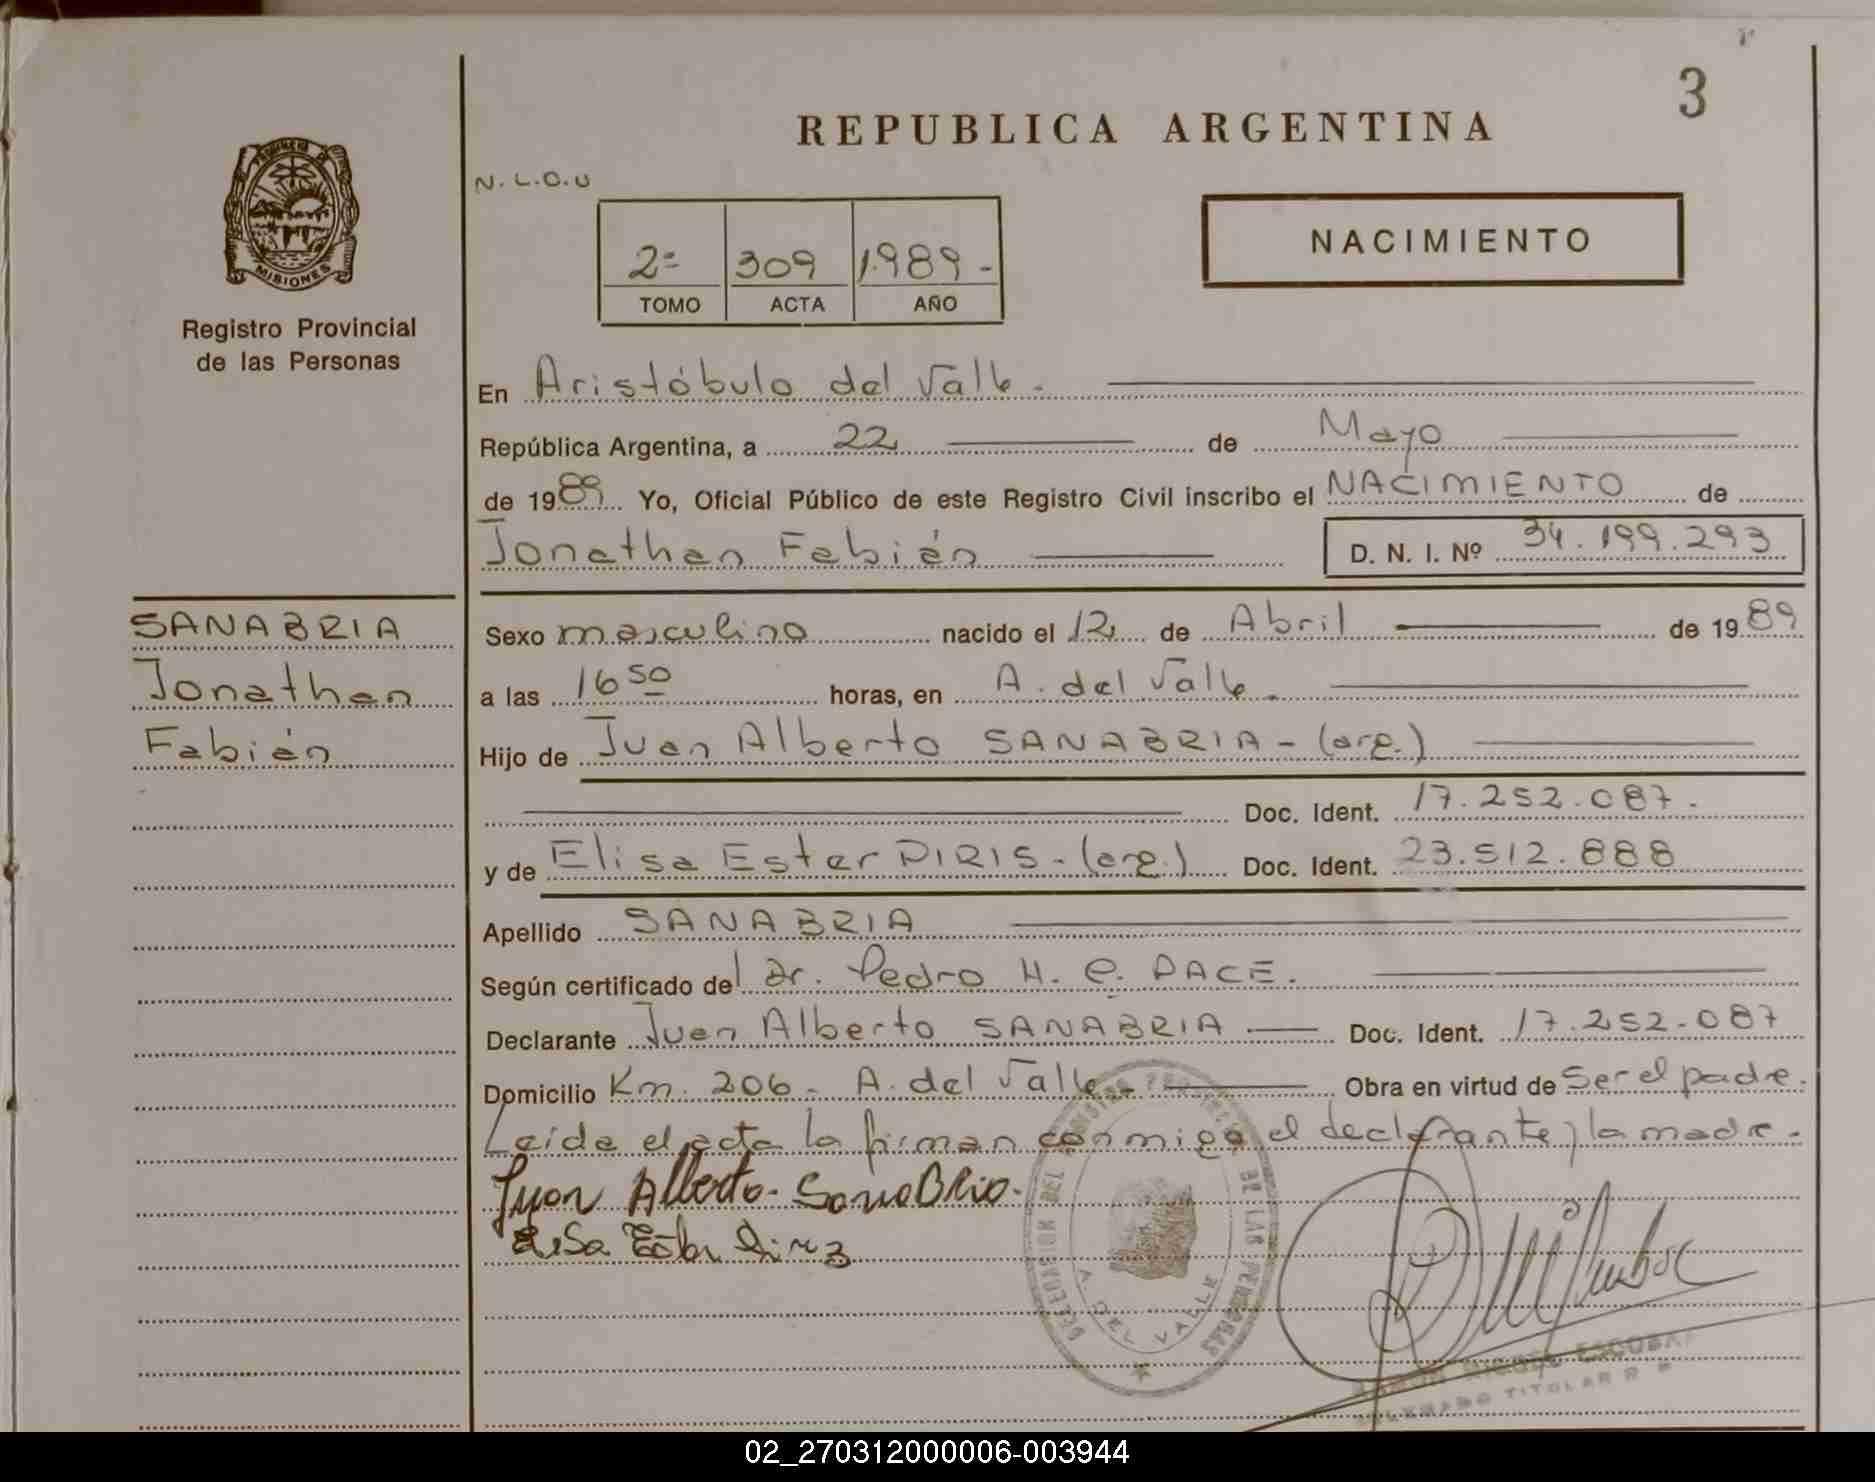 3
REPUBLICA ARGENTINA
PROVINCIA DE
MISIONES
Registro Provincial
de las Personas
N.L.O.U
2º 309 1.989-
TOMO ACTA AÑO
NACIMIENTO
En Aristóbulo del Valle.
República Argentina, a 22 de Mayo
de 1989 Yo, Oficial Público de este Registro Civil inscribo el NACIMIENTO de
Jonathan Fabián D. N. I. Nº 34.199.293
SANABRIA
Jonathan
Fabián
Sexo masculino nacido el 12 de Abril de 1989
a las 16 50 horas, en A. del Valle.
Hijo de Juan Alberto SANABRIA - (arg.)
Doc. Ident. 17.252.087.
y de Elisa Ester PIRIS - (arg.) Doc. Ident. 23.512.888
Apellido SANABRIA
Según certificado del Dr. Pedro H. C. PACE.
Declarante Juan Alberto SANABRIA Doc. Ident. 17.252.087
Domicilio Km. 206 - A. del Valle - Obra en virtud de Ser el padre.
Leída el acta la firman conmigo el declarante y la madre.
Juan Alberto. Sanabria.
Elisa Ester
DELEGACION DEL REGISTRO PROVINCIAL DE LAS PERSONAS
A. DEL VALLE
RAMON MIGUEL ESCOBAR
DELEGADO TITULAR R P
02_270312000006-003944